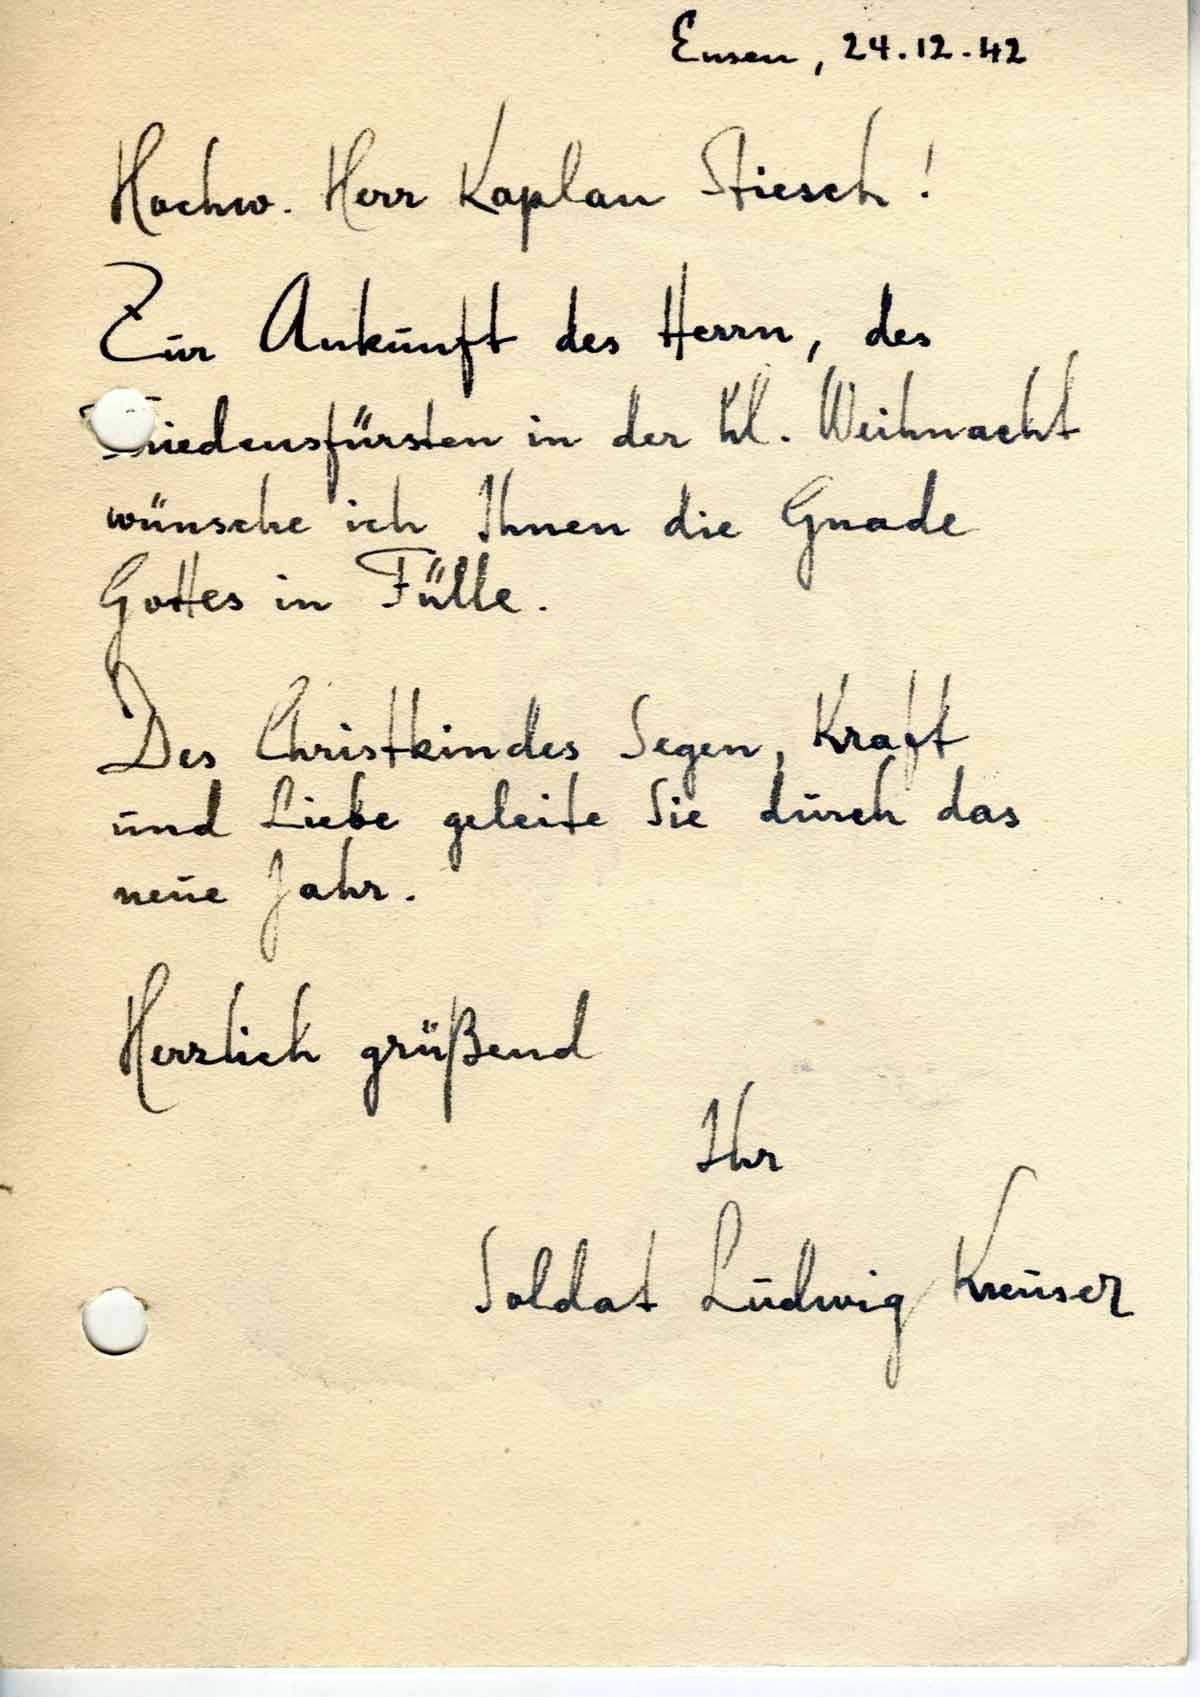 Ensen, 24.12.42
Hochw. Herr Kaplan Stiesch!
Zur Ankunft des Herrn, des
Friedensfürsten in der hl. Weihnacht
wünsche ich Ihnen die Gnade
Gottes in Fülle.
Des Christkindes Segen, Kraft
und Liebe geleite Sie durch das
neue Jahr.
Herzlich grüßend
Ihr
Soldat Ludwig Kreuser